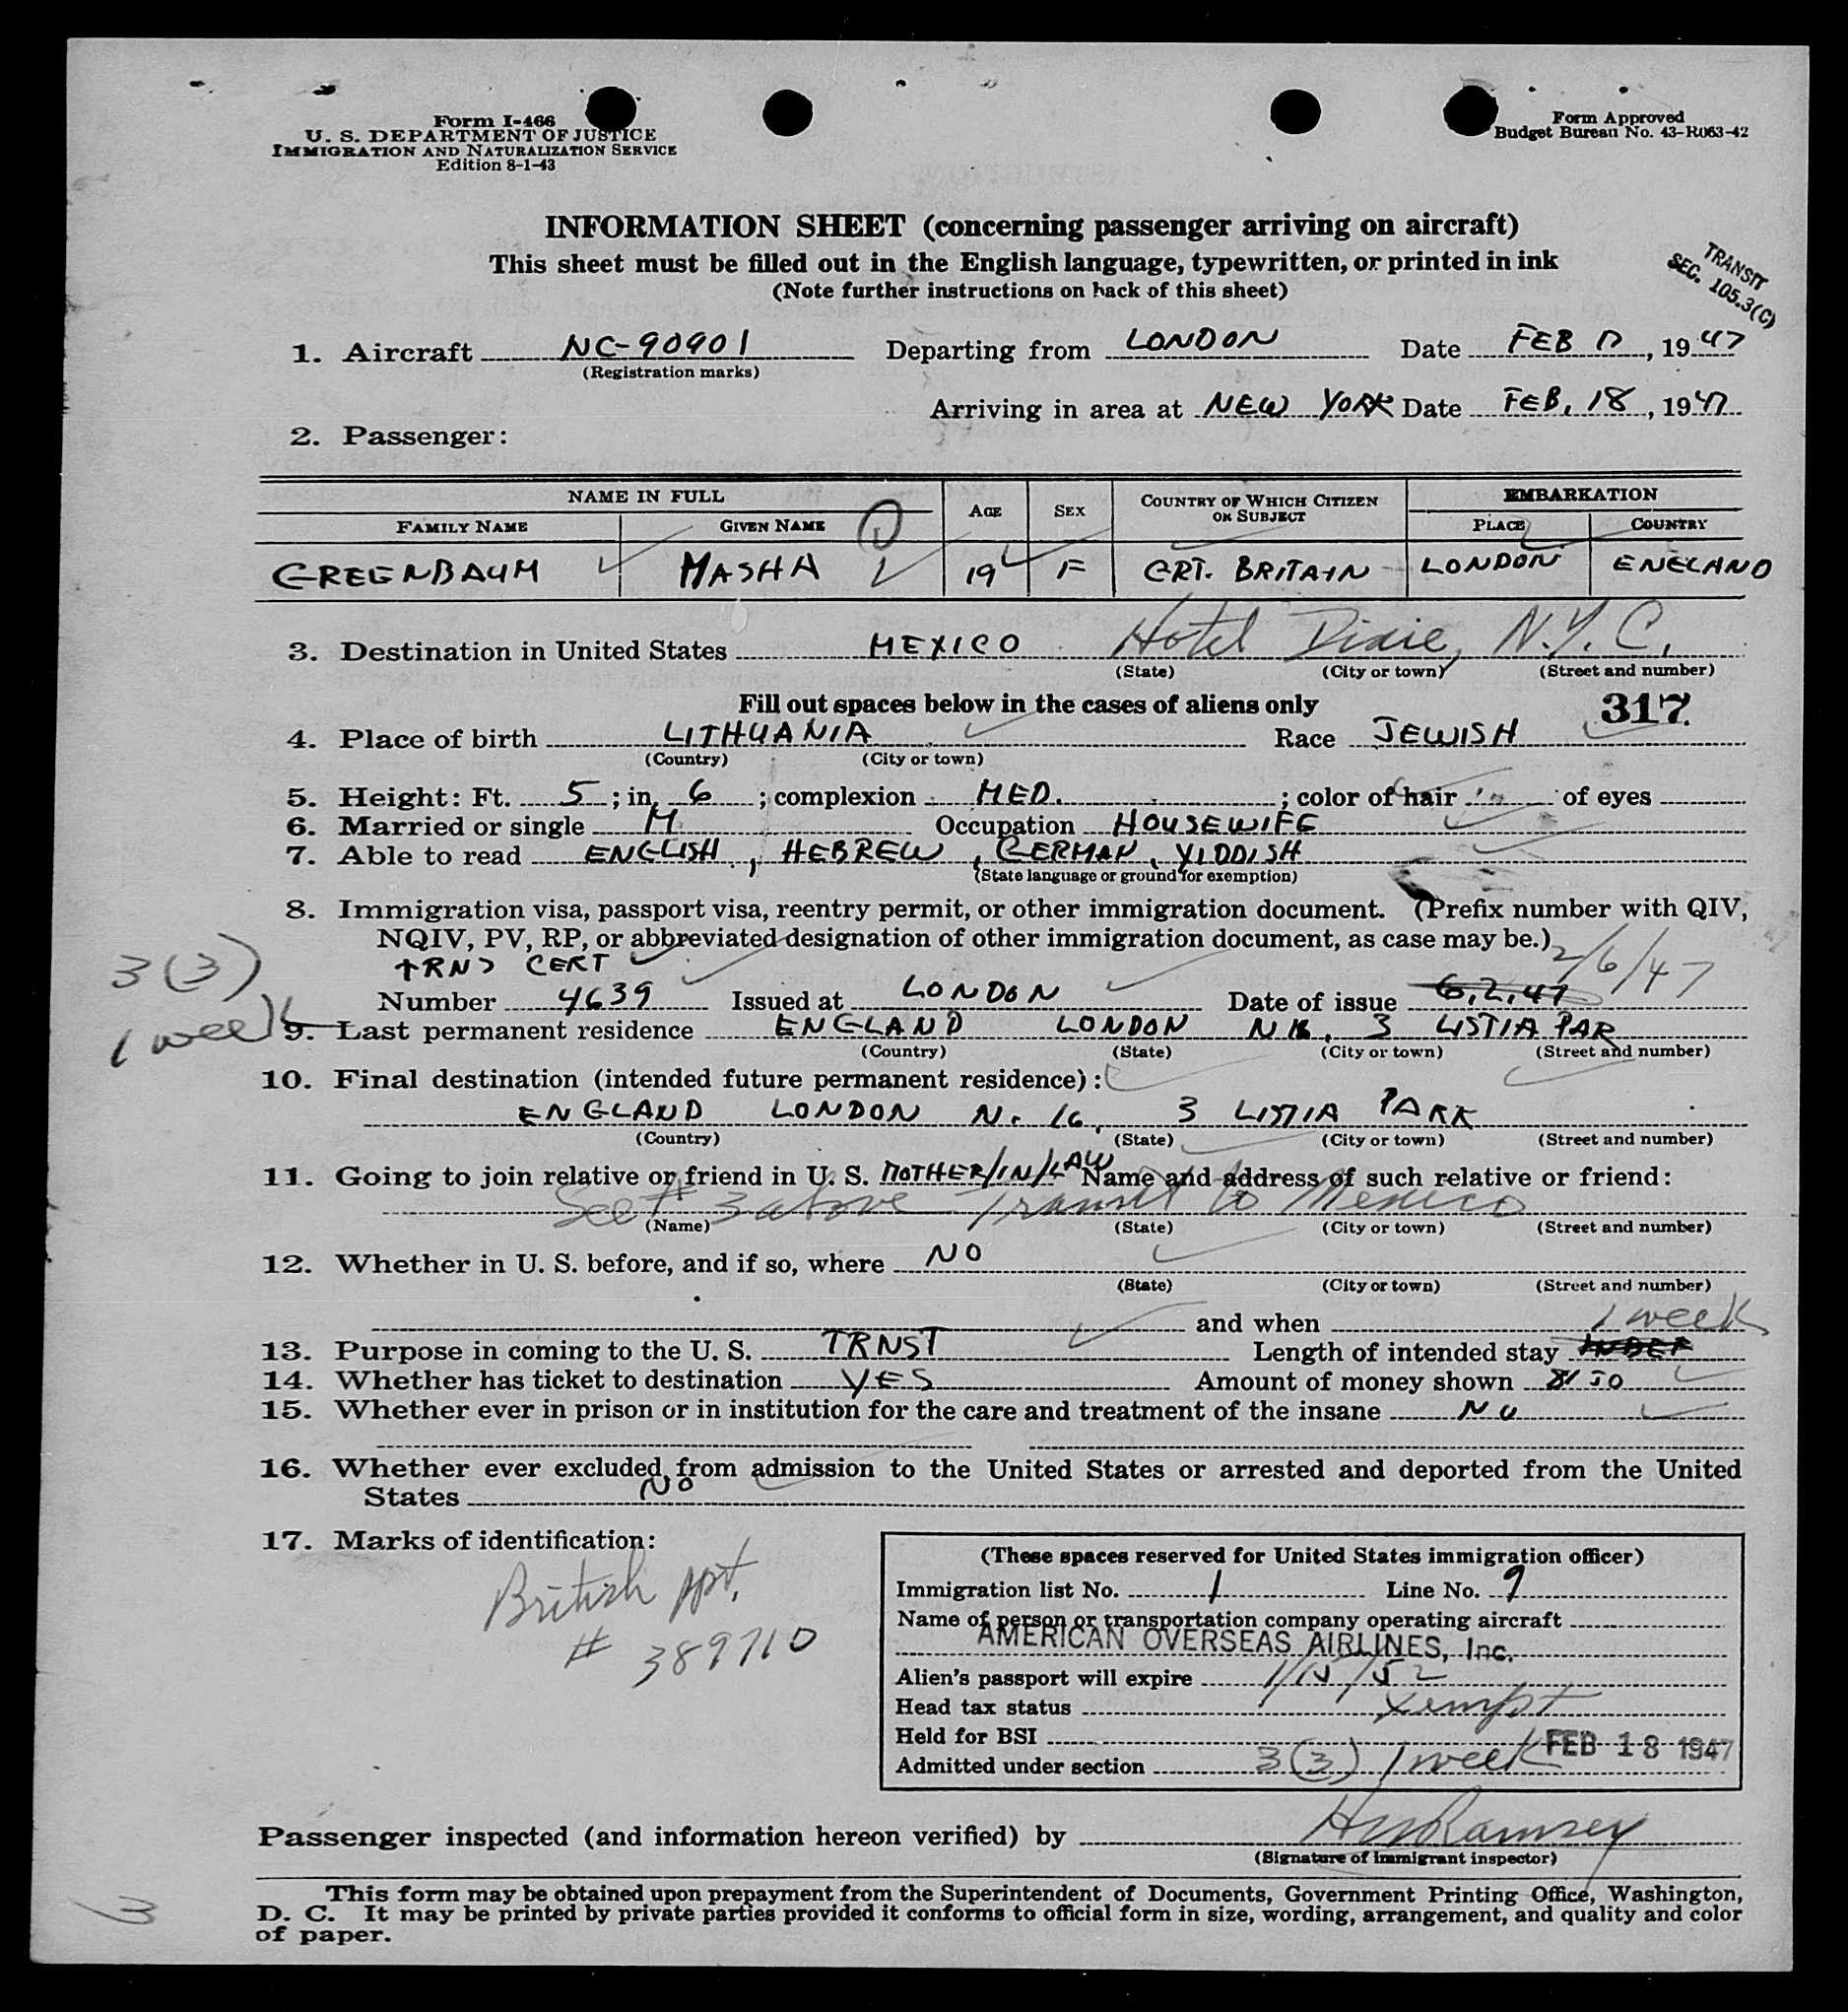 Form I-466
U. S. DEPARTMENT OF JUSTICE
IMMIGRATION AND NATURALIZATION SERVICE
Edition 8-1-43
Form Approved
Budget Bureau No. 43-R063-42
INFORMATION SHEET (concerning passenger arriving on aircraft)
This sheet must be filled out in the English language, typewritten, or printed in ink
(Note further instructions on back of this sheet)
TRANSIT
SEC. 105.3(C)
1. Aircraft NC-90901 Departing from LONDON Date FEB 17, 1947
(Registration marks)
Arriving in area at NEW YORK Date FEB, 18, 1947
2. Passenger:
NAME IN FULL AGE SEX COUNTRY OF WHICH CITIZEN OR SUBJECT EMBARKATION
FAMILY NAME GIVEN NAME PLACE COUNTRY
GREENBAUM MASHA 19 F GRT. BRITAIN LONDON ENGLAND
3. Destination in United States MEXICO Hotel Dixie, N.Y.C.
(State) (City or town) (Street and number)
Fill out spaces below in the cases of aliens only
317
4. Place of birth LITHUANIA Race JEWISH
(Country) (City or town)
5. Height: Ft. 5; in. 6; complexion MED.; color of hair of eyes
6. Married or single M Occupation HOUSEWIFE
7. Able to read ENGLISH, HEBREW, GERMAN, YIDDISH
(State language or ground for exemption)
8. Immigration visa, passport visa, reentry permit, or other immigration document. (Prefix number with QIV,
NQIV, PV, RP, or abbreviated designation of other immigration document, as case may be.)
TRNS CERT 2/6/47
3(3)
Number 4639 Issued at LONDON Date of issue 6,2,47
1 week
9. Last permanent residence ENGLAND LONDON N16, 3 LISTIA PAR
(Country) (State) (City or town) (Street and number)
10. Final destination (intended future permanent residence):
ENGLAND LONDON N. 16, 3 LISTIA PARK
(Country) (State) (City or town) (Street and number)
11. Going to join relative or friend in U. S. MOTHER/IN/LAW Name and address of such relative or friend:
See # 3 above Transit to Mexico
(Name) (State) (City or town) (Street and number)
12. Whether in U. S. before, and if so, where NO
(State) (City or town) (Street and number)
and when
1 week
13. Purpose in coming to the U. S. TRNST Length of intended stay INDEF
14. Whether has ticket to destination YES Amount of money shown 50
15. Whether ever in prison or in institution for the care and treatment of the insane NO
16. Whether ever excluded from admission to the United States or arrested and deported from the United
States NO
17. Marks of identification:
British ppt.
# 389710
(These spaces reserved for United States immigration officer)
Immigration list No. 1 Line No. 9
Name of person or transportation company operating aircraft
AMERICAN OVERSEAS AIRLINES, Inc.
Alien's passport will expire 1/15/52
Head tax status Xempt
Held for BSI
FEB 18 1947
Admitted under section 3(3) 1 week
Passenger inspected (and information hereon verified) by HM Ramsey
(Signature of immigrant inspector)
This form may be obtained upon prepayment from the Superintendent of Documents, Government Printing Office, Washington,
D. C. It may be printed by private parties provided it conforms to official form in size, wording, arrangement, and quality and color
of paper.
3